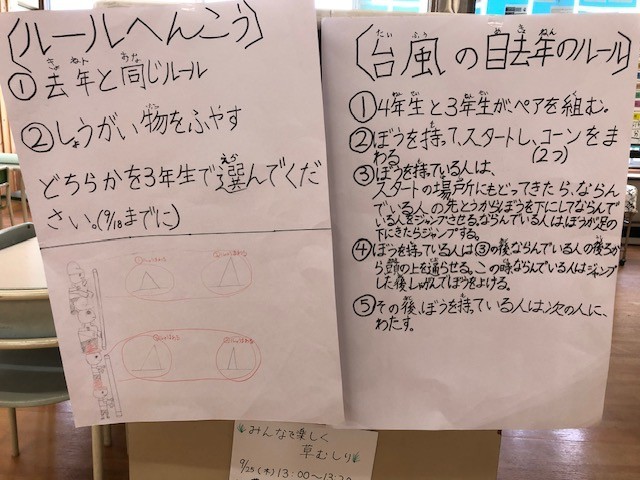 〔ルールへんこう〕
①去年と同じルール
きょ ねん おな
②しょうがい物をふやす
どちらかを3年生で選んでくだ
えら
さい。(9/18までに)
〔台風の目去年のルール〕
たい ふう め きょ ねん
①4年生と3年生が、ペアを組む。
②ぼうを持って、スタートし、コーンをま
わる。 (2つ)
③ぼうを持っている人は、
スタートの場所にもどってきたら、ならん
でいる人の先とうからぼうを下にしてならんで
いる人をジャンプさせる。ならんでいる人は、ぼうが足の
下にきたらジャンプする。
④ぼうを持っている人は③の後ならんでいる人の後ろか
ら頭の上を通らせる。この時、ならんでいる人はジャンプ
した後しゃがんでぼうをよける。
⑤その後、ぼうを持っている人は、次の人に、
わたす。
みんなで楽しく
草むしり
9/25(木)13:00〜13:20